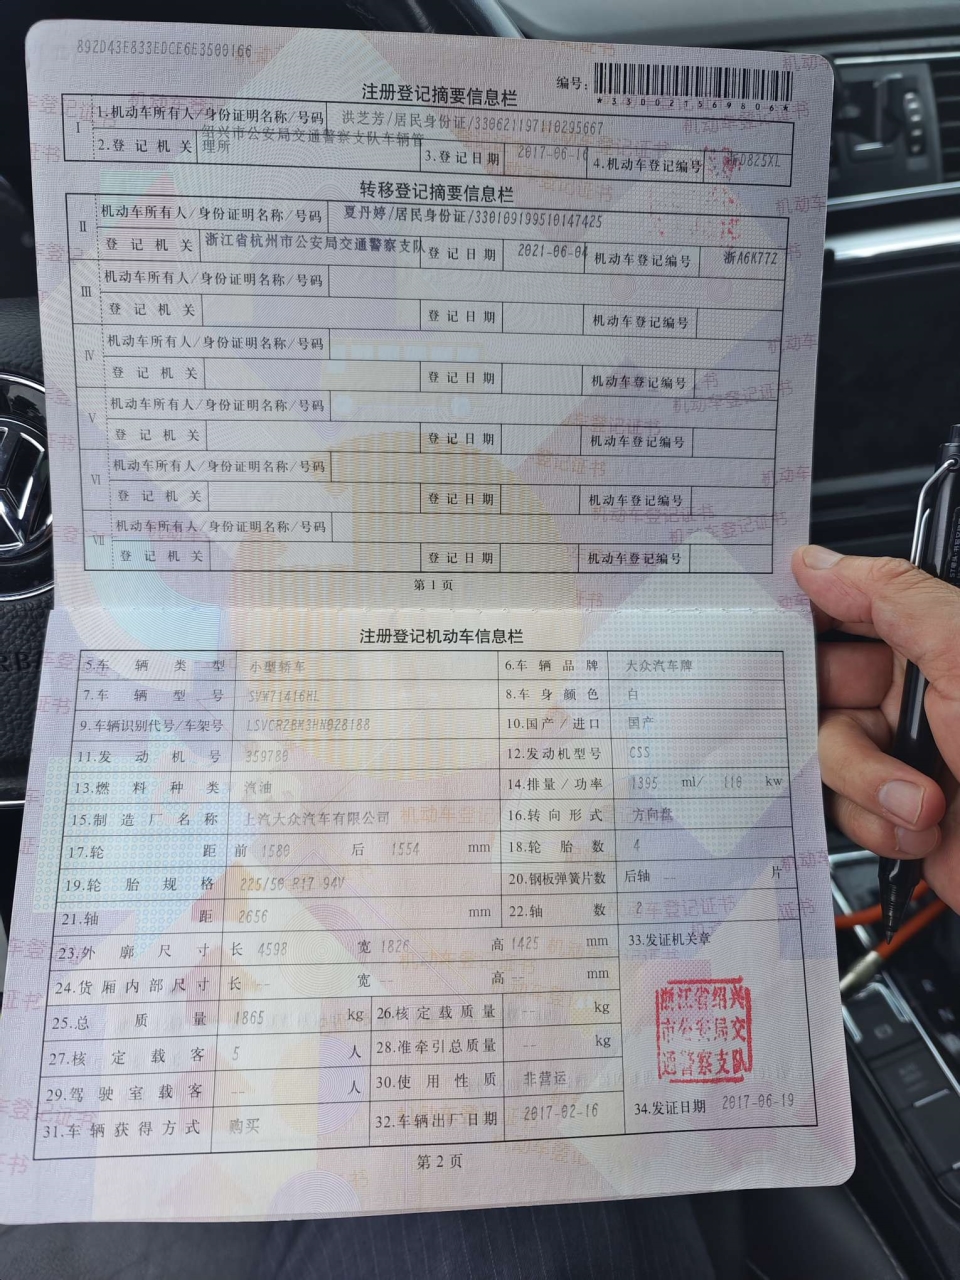 892D43E833EDCE6E3500166
编号:
*330021569806*
注册登记摘要信息栏
I 1.机动车所有人/身份证明名称/号码 洪芝芳/居民身份证/330621197110295667
2.登记机关 绍兴市公安局交通警察支队车辆管理所 3.登记日期 2017-06-16 4.机动车登记编号 浙D825XL
转移登记摘要信息栏
II 机动车所有人/身份证明名称/号码 夏丹婷/居民身份证/330109199510147425
登记机关 浙江省杭州市公安局交通警察支队 登记日期 2021-06-04 机动车登记编号 浙A6K77Z
III 机动车所有人/身份证明名称/号码
登记机关 登记日期 机动车登记编号
IV 机动车所有人/身份证明名称/号码
登记机关 登记日期 机动车登记编号
V 机动车所有人/身份证明名称/号码
登记机关 登记日期 机动车登记编号
VI 机动车所有人/身份证明名称/号码
登记机关 登记日期 机动车登记编号
VII 机动车所有人/身份证明名称/号码
登记机关 登记日期 机动车登记编号
第1页
注册登记机动车信息栏
5.车辆类型 小型轿车 6.车辆品牌 大众汽车牌
7.车辆型号 SVW71416HL 8.车身颜色 白
9.车辆识别代号/车架号 LSVCR2BM3HN028188 10.国产/进口 国产
11.发动机号 359780 12.发动机型号 CSS
13.燃料种类 汽油 14.排量/功率 1395 ml/ 110 kw
15.制造厂名称 上汽大众汽车有限公司 16.转向形式 方向盘
17.轮距 前 1580 后 1554 mm 18.轮胎数 4
19.轮胎规格 225/50 R17 94V 20.钢板弹簧片数 后轴 -- 片
21.轴距 2656 mm 22.轴数 2
23.外廓尺寸 长 4598 宽 1826 高 1425 mm 33.发证机关章
24.货厢内部尺寸 长 -- 宽 -- 高 -- mm
25.总质量 1865 kg 26.核定载质量 -- kg
27.核定载客 5 人 28.准牵引总质量 -- kg
29.驾驶室载客 -- 人 30.使用性质 非营运
31.车辆获得方式 购买 32.车辆出厂日期 2017-02-16 34.发证日期 2017-06-19
浙江省绍兴
市公安局交
通警察支队
第2页